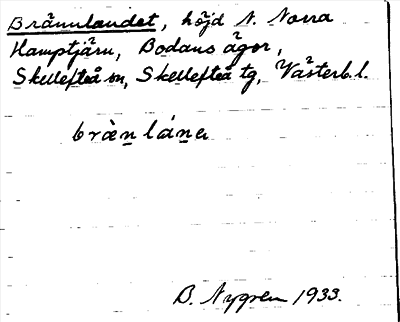 Brännlandet, höjd N. Norra
Hamptjärn, Bodans ägor,
Skellefteå sn, Skellefteå tg, Västerb. l.
bràn̲lán̲ə
B. Nygren 1933.